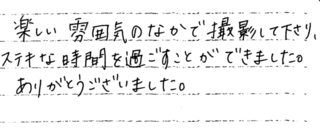 楽しい雰囲気のなかで撮影して下さり、
ステキな時間を過ごすことができました。
ありがとうございました。